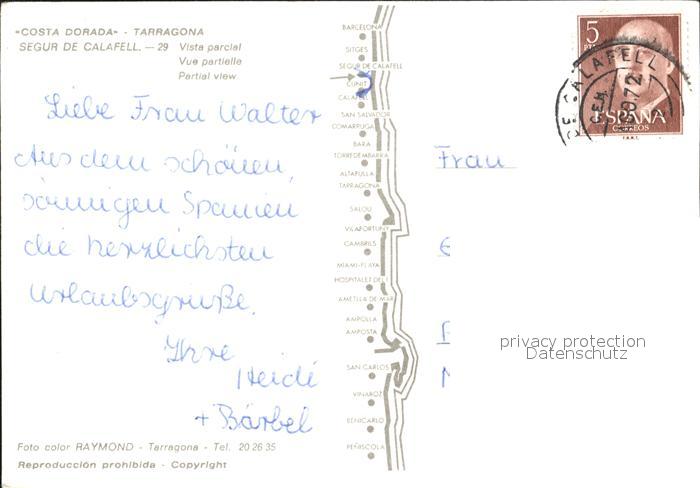 «COSTA DORADA» - TARRAGONA
SEGUR DE CALAFELL. — 29 Vista parcial
Vue partielle
Partial view
Liebe Frau Walter
Aus dem schönen,
sonnigen Spanien
die herzlichsten
Urlaubsgrüße.
Ihre
Heidi
+ Bärbel
Foto color RAYMOND - Tarragona - Tel. 20 26 35
Reproducción prohibida - Copyright
BARCELONA
SITGES
SEGUR DE CALAFELL
CUNIT
CALAFELL
SAN SALVADOR
COMARRUGA
BARA
TORREDEMBARRA
ALTAFULLA
TARRAGONA
SALOU
VILAFORTUNY
CAMBRILS
MIAMI-PLAYA
HOSPITALET DEL I.
AMETLLA DE MAR
AMPOLLA
AMPOSTA
SAN CARLOS
VINAROZ
BENICARLO
PEÑISCOLA
5
PTS
CALAFELL
ESPAÑA
CORREOS
F.N.M.T.
Frau
privacy protection
Datenschutz